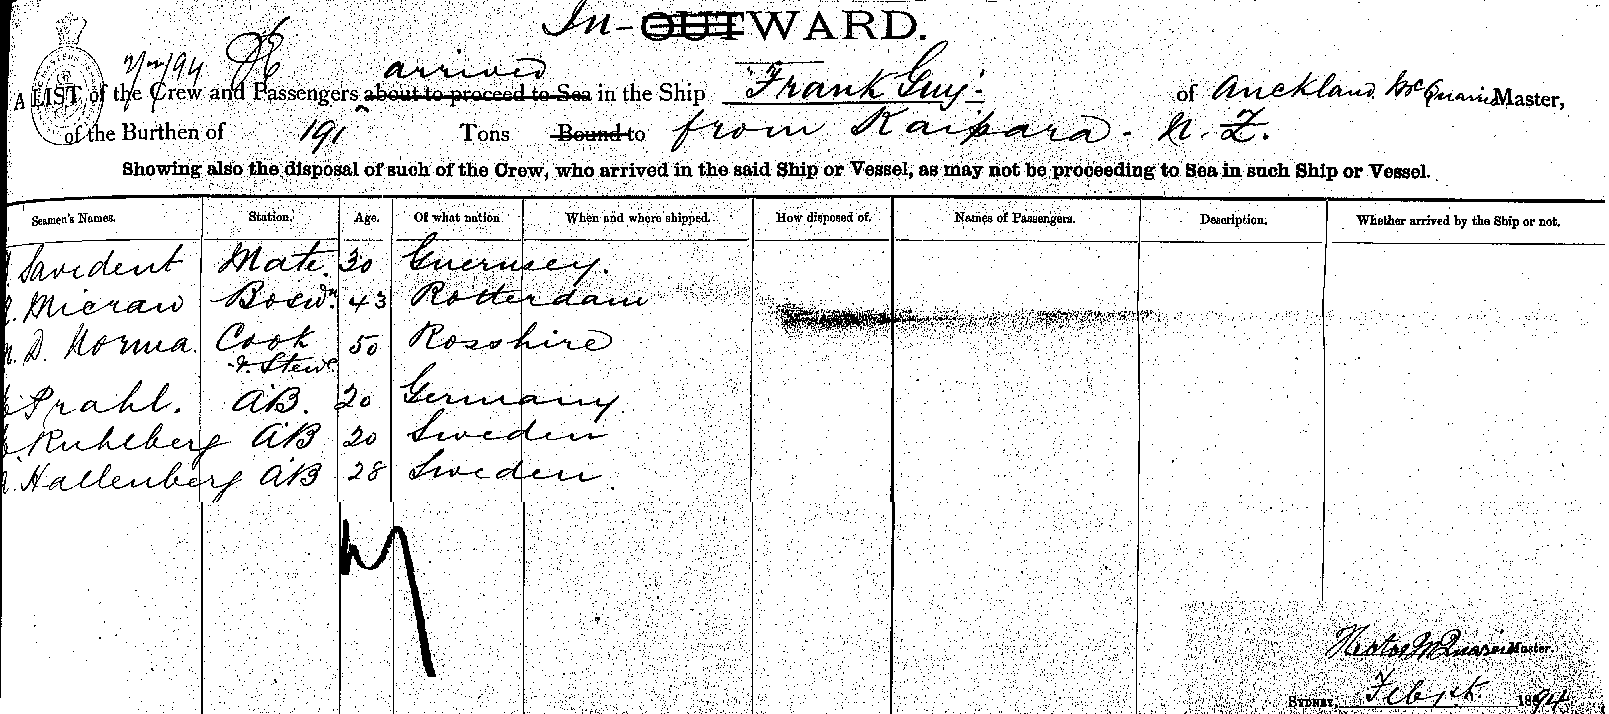 In-OUTWARD.
arrived
A LIST of the Crew and Passengers about to proceed to Sea in the Ship Frank Guy of Auckland McQuarie Master,
of the Burthen of 191 Tons Bound to from Kaipara. N.Z.
Showing also the disposal of such of the Crew, who arrived in the said Ship or Vessel, as may not be proceeding to Sea in such Ship or Vessel.
Seamen's Names. Station. Age. Of what nation When and where shipped. How disposed of. Names of Passengers. Description. Whether arrived by the Ship or not.
Savident Mate 30 Guernsey.
Micraw Boswn. 43 Rotterdam
D. Norma. Cook 50 Rosshire
& Stewd
Prahl. AB. 20 Germany
Ruhlberg AB 20 Sweden
Hallenberg AB 28 Sweden
Master.
SYDNEY, Feb 1st. 1894